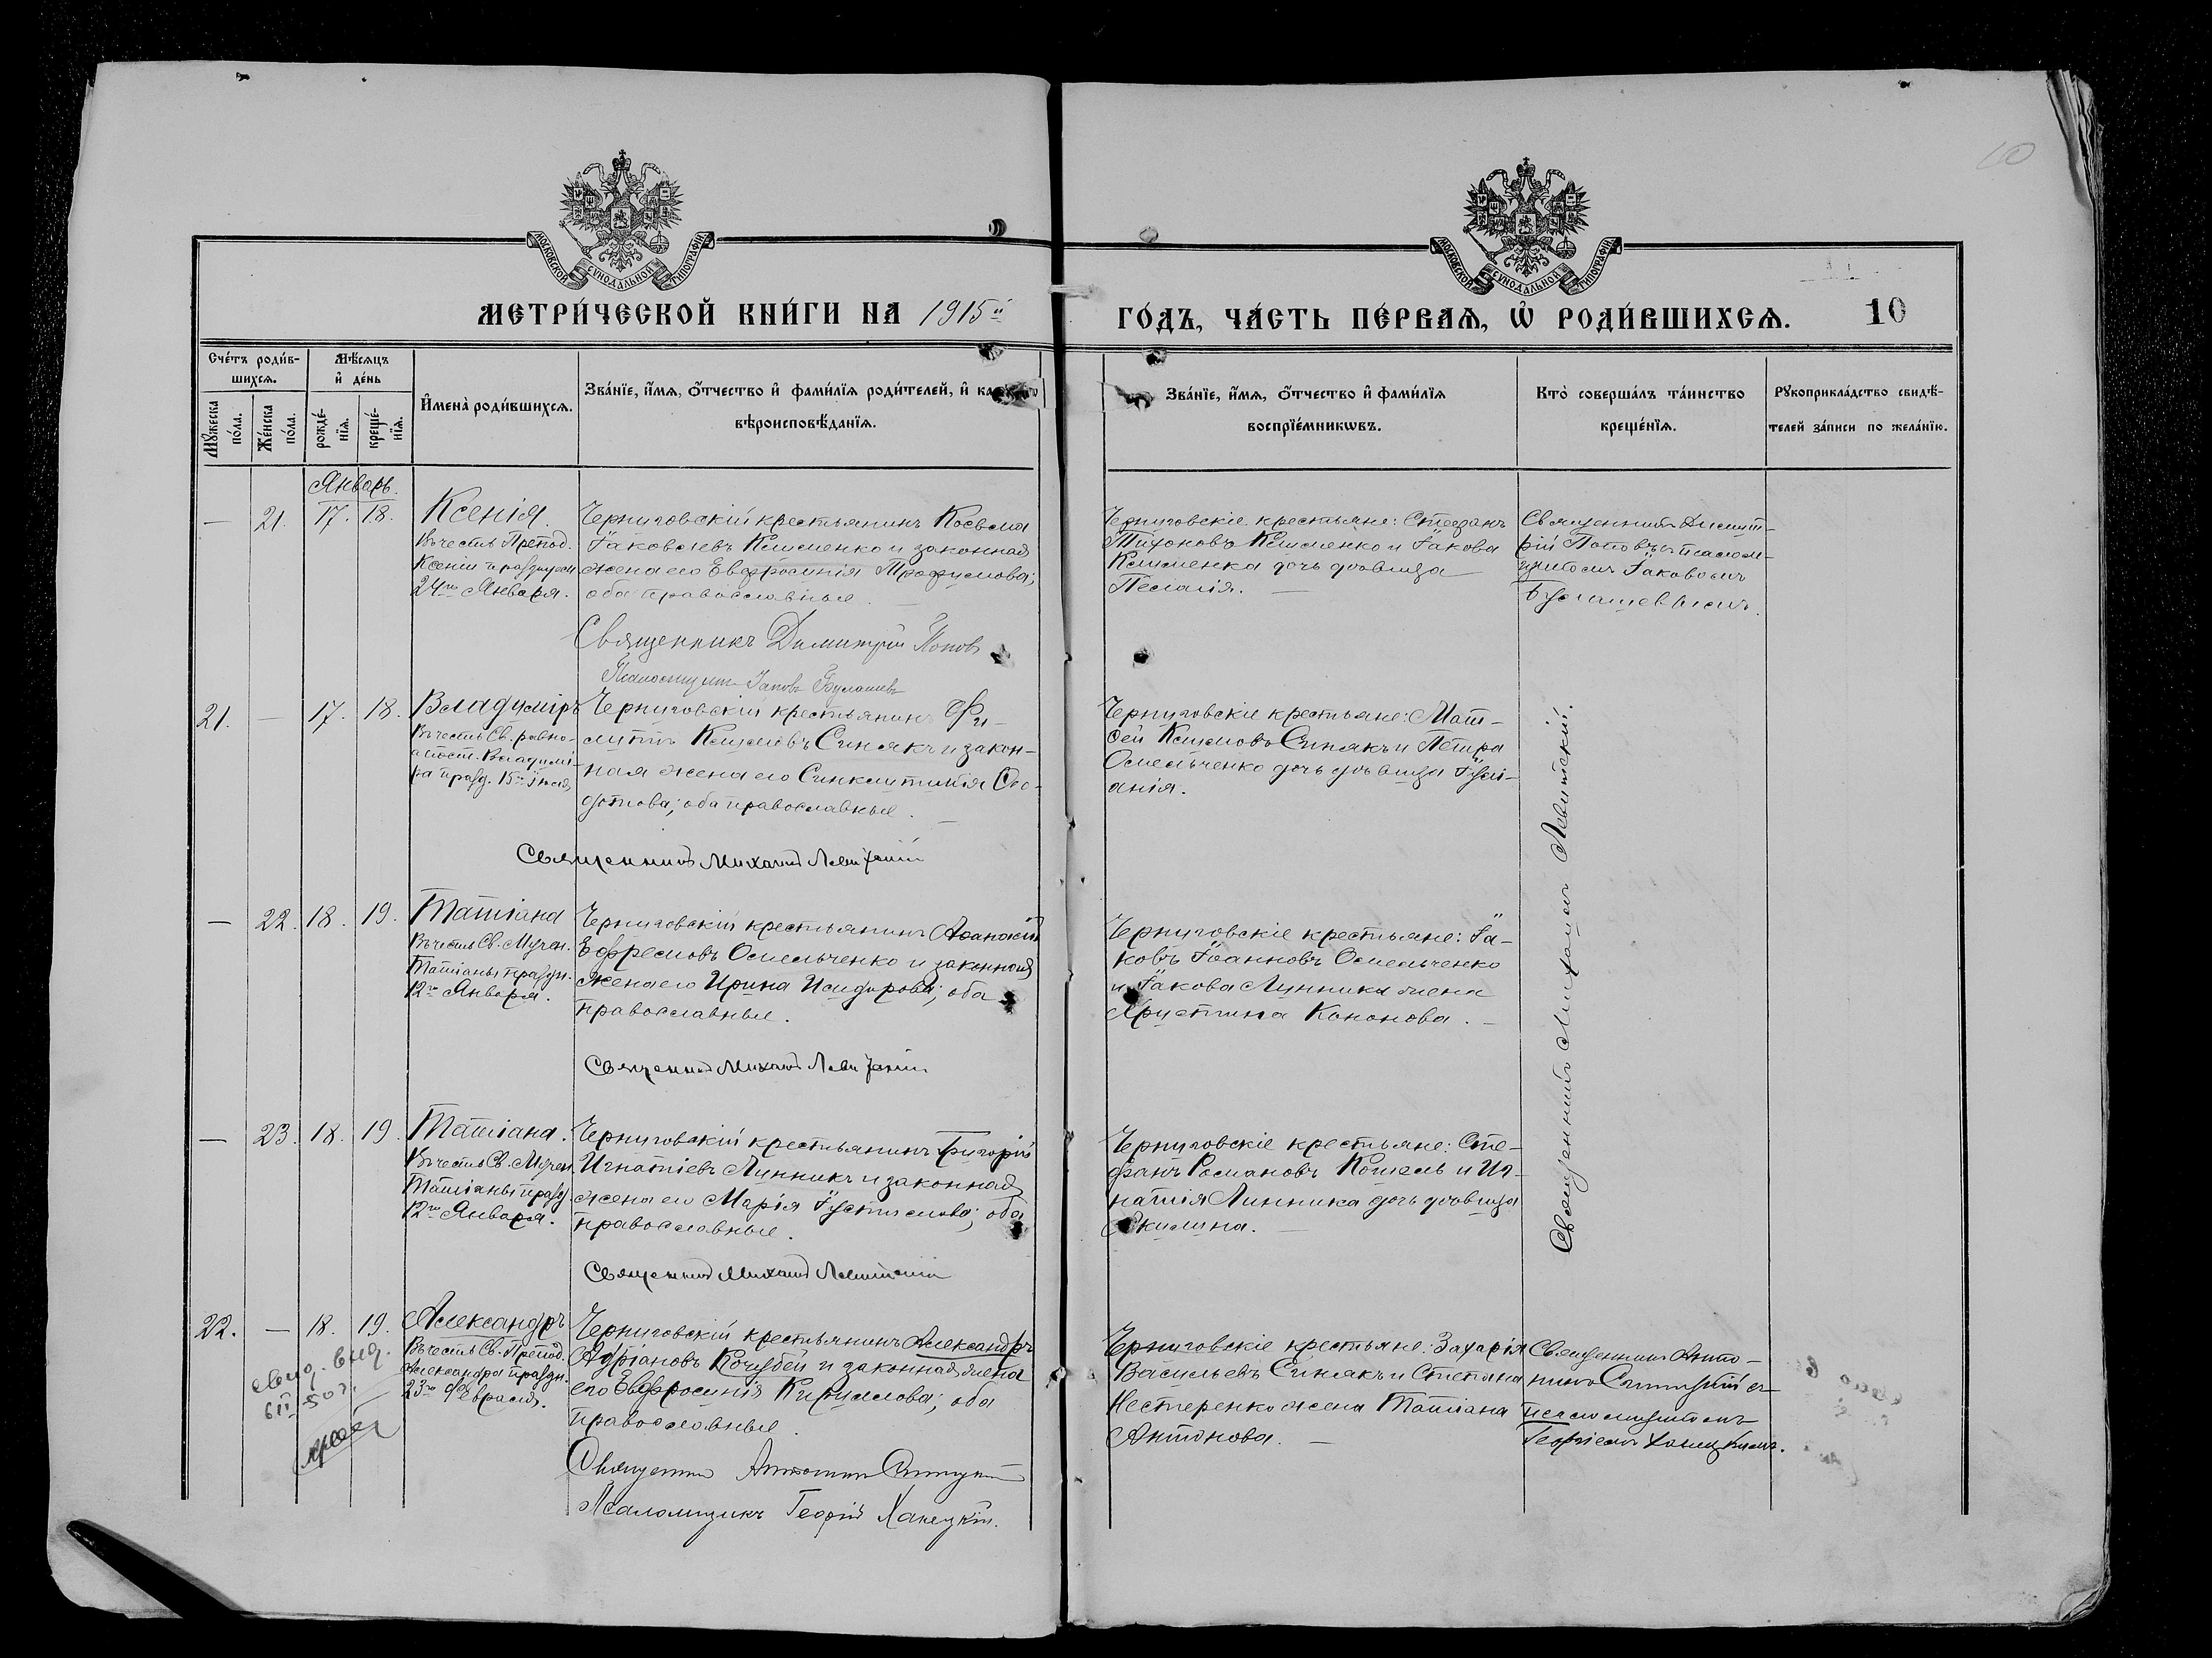 10
МОСКОВСКОЙ СѴНОДАЛЬНОЙ ТИПОГРАФІИ
МОСКОВСКОЙ СѴНОДАЛЬНОЙ ТИПОГРАФІИ
МЕТРИ́ЧЕСКОЙ КНИ́ГИ НА 1915й
ГО́ДЪ, ЧА́СТЬ ПЕ́РВАѦ, Ѡ҆ РОДИ́ВШИХСѦ. 10
Сче́тъ роди́в-
шихсѧ.
Мꙋ́жеска по́ла.
Же́нска по́ла.
Мѣ́сѧцъ
и҆ де́нь
рожде́-
нїѧ.
креще́-
нїѧ.
И҆мена̀ роди́вшихсѧ.
Зва́нїе, и҆́мѧ, ѻ҆́тчество и҆ фами́лїѧ роди́телей, и҆
вѣроисповѣ́данїѧ.
Зва́нїе, и҆́мѧ, ѻ҆́тчество и҆ фами́лїѧ
воспрїе́мникѡвъ.
Кто̀ соверша́лъ та́инство
креще́нїѧ.
Рꙋкоприкла́дство свидѣ́-
телей за́писи по жела́нїю.
Январь.
— 21. 17. 18.
Ксенія.
Въ честь Препод.
Ксеніи празднуем.
24го Января.
Черниговскій крестьянинъ Косьма
Іаковлевъ Клименко и законная
жена его Евфросинія Трофимова;
оба православные.
Священникъ Димитрій Поповъ
Псаломщикъ Іаковъ
Черниговскіе крестьяне: Стефанъ
Тихоновъ Клименко и Іакова
Клименка дочь дѣвица
Пелагія. —
Священникъ Димит-
рій Поповъ съ псалом-
щикомъ Іаковомъ
21. — 17. 18.
Владиміръ
Въ честь Св. равно-
апост. Владимі-
ра празд. 15го Іюля,
Черниговскій крестьянинъ Фи-
липпъ Климовъ Синякъ и закон-
ная жена его Синклитикія Ѳео-
дотова; оба православные.
Священникъ Михаилъ Левитскій
Черниговскіе крестьяне: Мат-
ѳей Климовъ Синякъ и Петра
Омельченко дочь дѣвица Іулі-
анія.
Священникъ Михаилъ Левитскій.
— 22. 18. 19.
Татіана
Въ честь Св. Мучен.
Татіаны праздн.
12го Января.
Черниговскій крестьянинъ Аѳанасій
Ефремовъ Омельченко и законная
жена его Ирина Исидорова; оба
православные.
Священникъ Михаилъ Левитскій
Черниговскіе крестьяне: Іа-
ковъ Іоанновъ Омельченко
и Іакова Линника жена
Христина Кононова. —
— 23. 18. 19.
Татіана.
Въ честь Св. Мучен.
Татіаны празд.
12го Января.
Черниговскій крестьянинъ Григорій
Игнатіевъ Линникъ и законная
жена его Марія Іустинова; оба
православные.
Священникъ Михаилъ Левитскій
Черниговскіе крестьяне: Сте-
фанъ Романовъ Кошель и Иг-
натія Линника дочь дѣвица
Акилина.
22. — 18. 19.
Александръ
Въ честь Св. Препод.
Александра праздн.
23го Февраля.
свид. выд.
6 II 50 г.
Черниговскій крестьянинъ Александръ
Адріановъ Кочубей и законная жена
его Евфросинія Кириллова; оба
православные.
Священникъ Антонин
Псаломщикъ Георгій Ханецкій.
Черниговскіе крестьяне: Захарія
Васильевъ Синякъ и Степана
Нестеренко жена Татіана
Антонова. —
Священникъ Анто-
нинъ съ
псаломщикомъ
Георгіемъ Ханецкимъ.